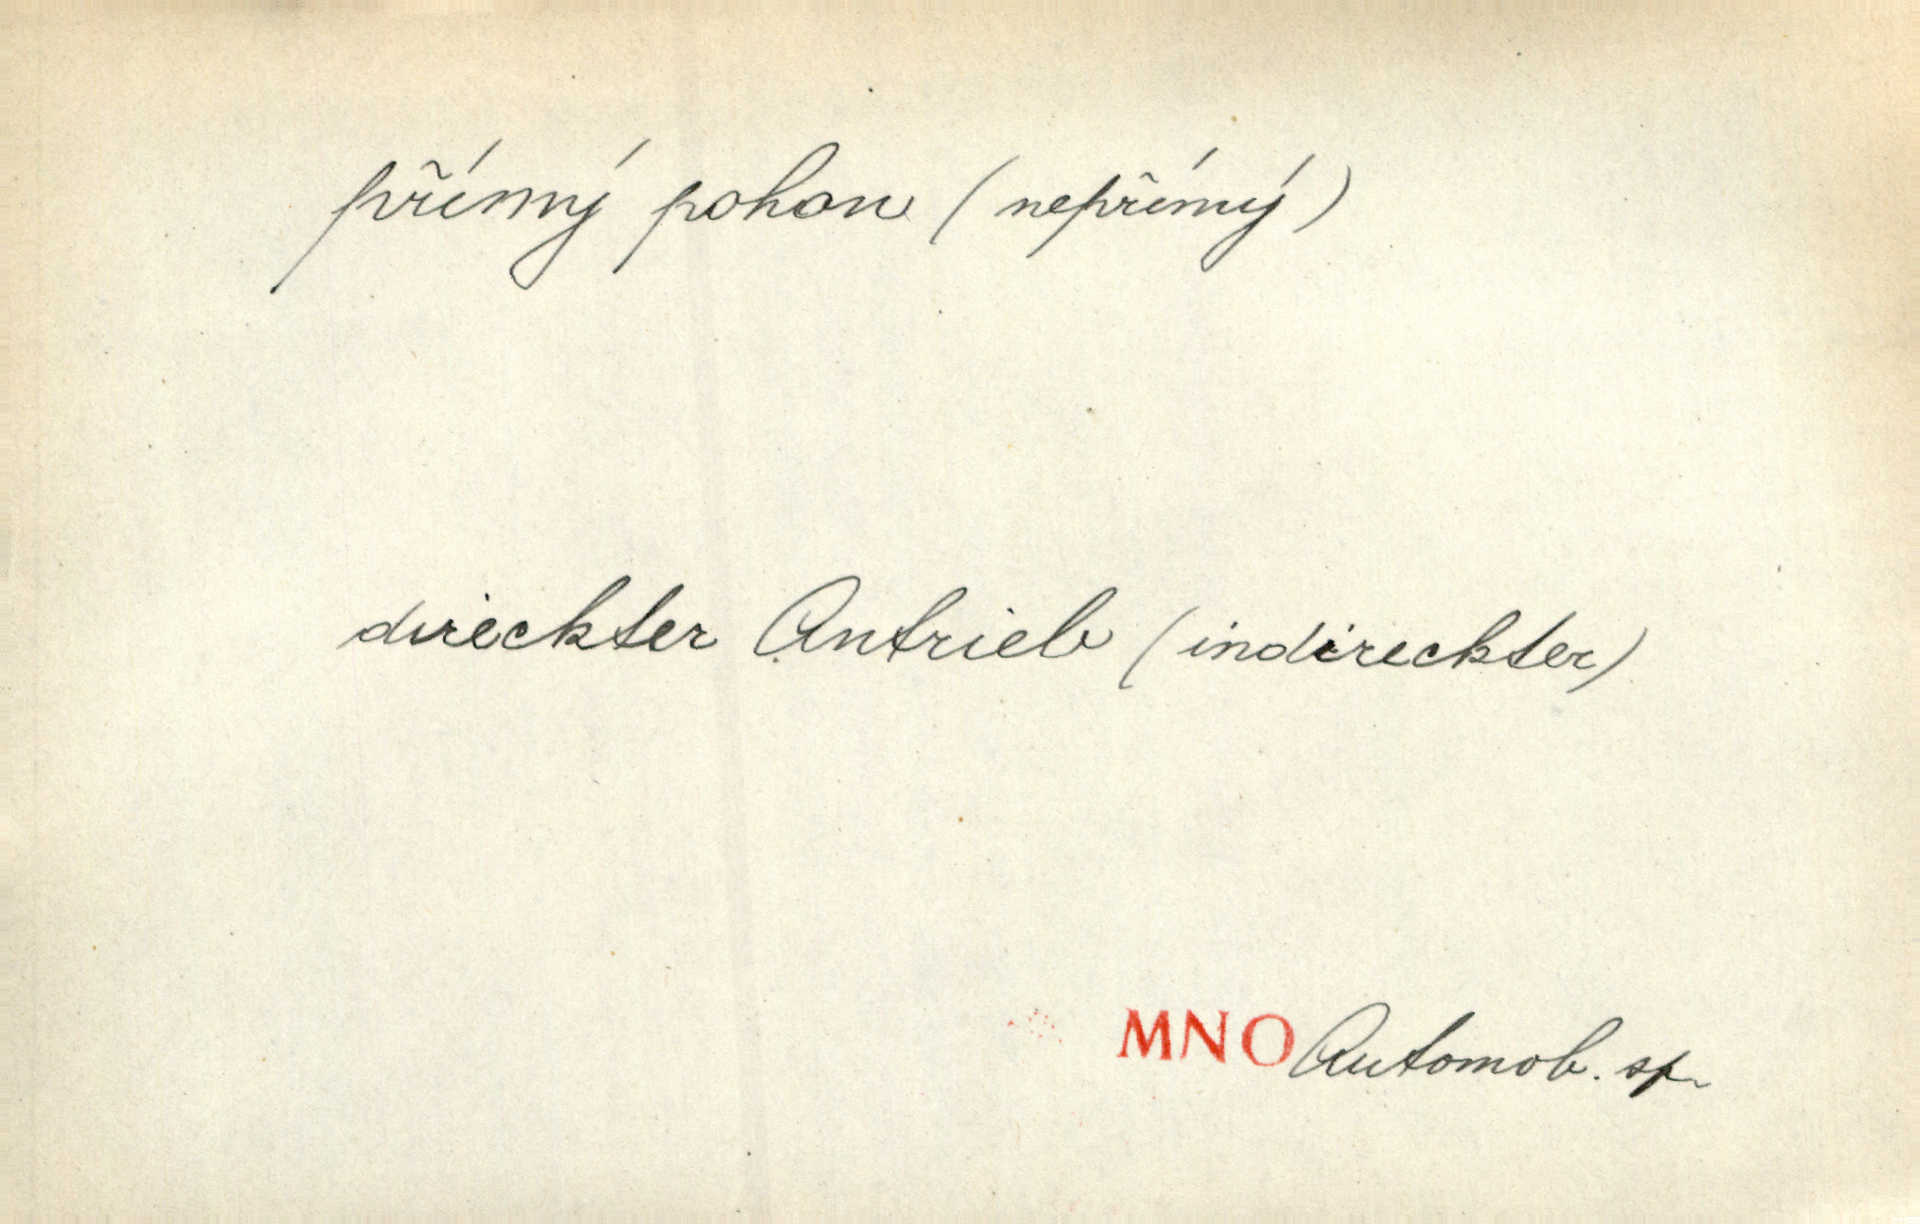 přímý pohon (nepřímý)
direckter Antrieb (indireckter)
MNO Automob. sp.